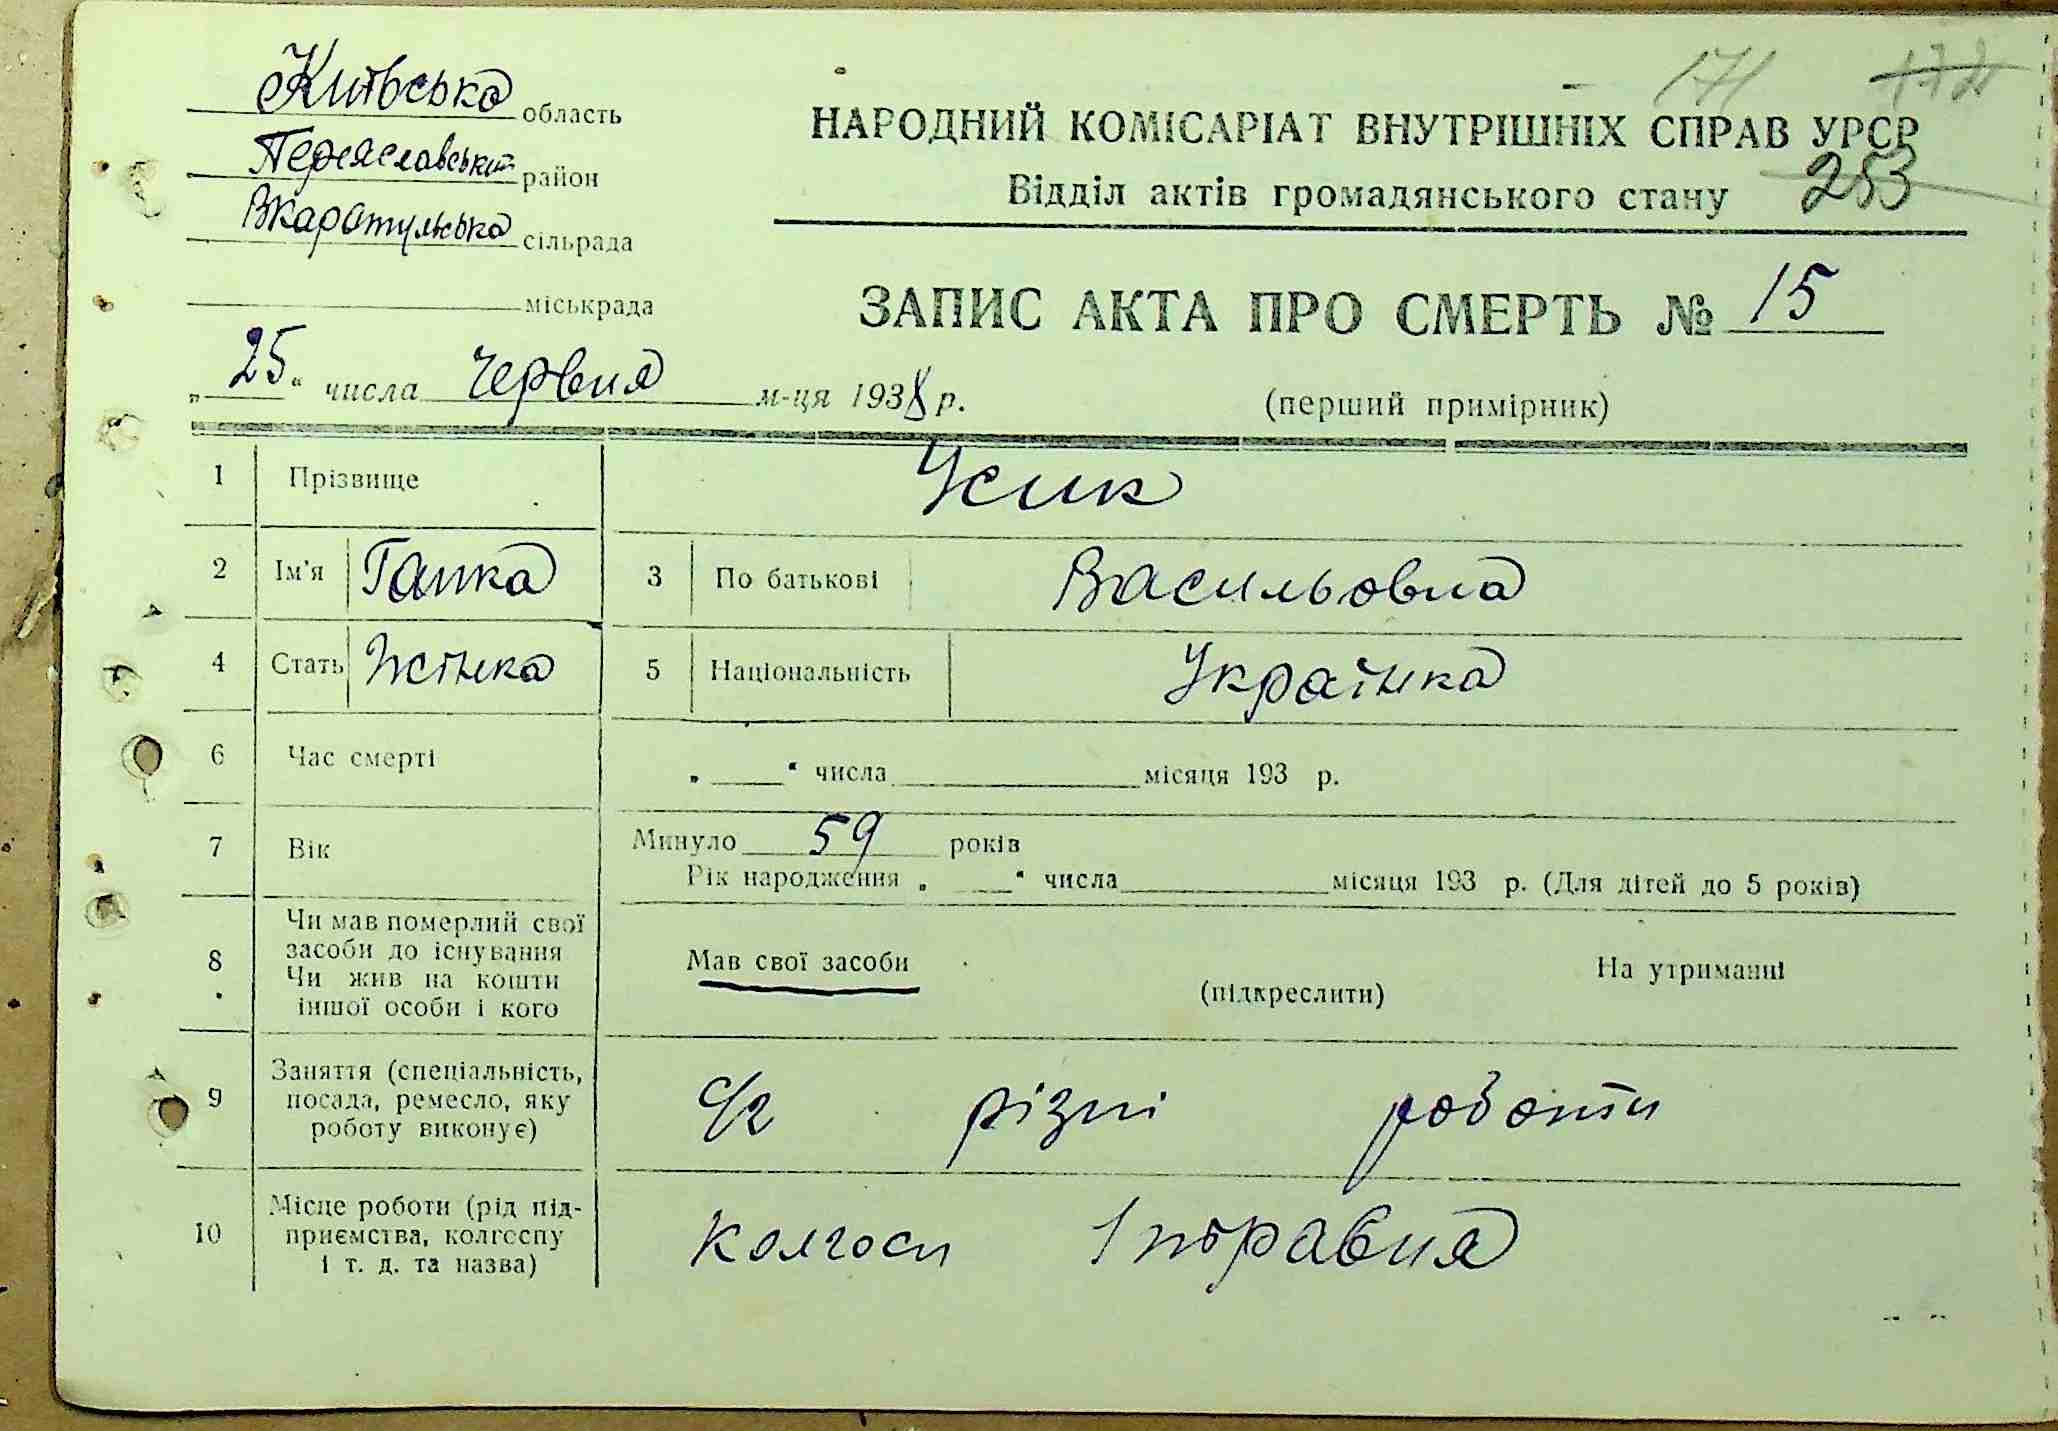 171 172
Київська область
НАРОДНИЙ КОМІСАРІАТ ВНУТРІШНІХ СПРАВ УРСР
Переяславський район
Відділ актів громадянського стану 253
Вкаратульська сільрада
міськрада
ЗАПИС АКТА ПРО СМЕРТЬ № 15
„25“ числа червня м-ця 1938 р.
(перший примірник)
1 Прізвище Усик
2 Ім'я Гапка 3 По батькові Васильовна
4 Стать Жінка 5 Національність Українка
6 Час смерті „ “ числа місяця 193 р.
7 Вік Минуло 59 років
Рік народження „ “ числа місяця 193 р. (Для дітей до 5 років)
8 Чи мав померлий свої
засоби до існування
Чи жив на кошти
іншої особи і кого
Мав свої засоби (підкреслити) На утриманні
9 Заняття (спеціальність,
посада, ремесло, яку
роботу виконує)
с/г різні роботи
10 Місце роботи (рід під-
приємства, колгоспу
і т. д. та назва)
колгосп 1 травня